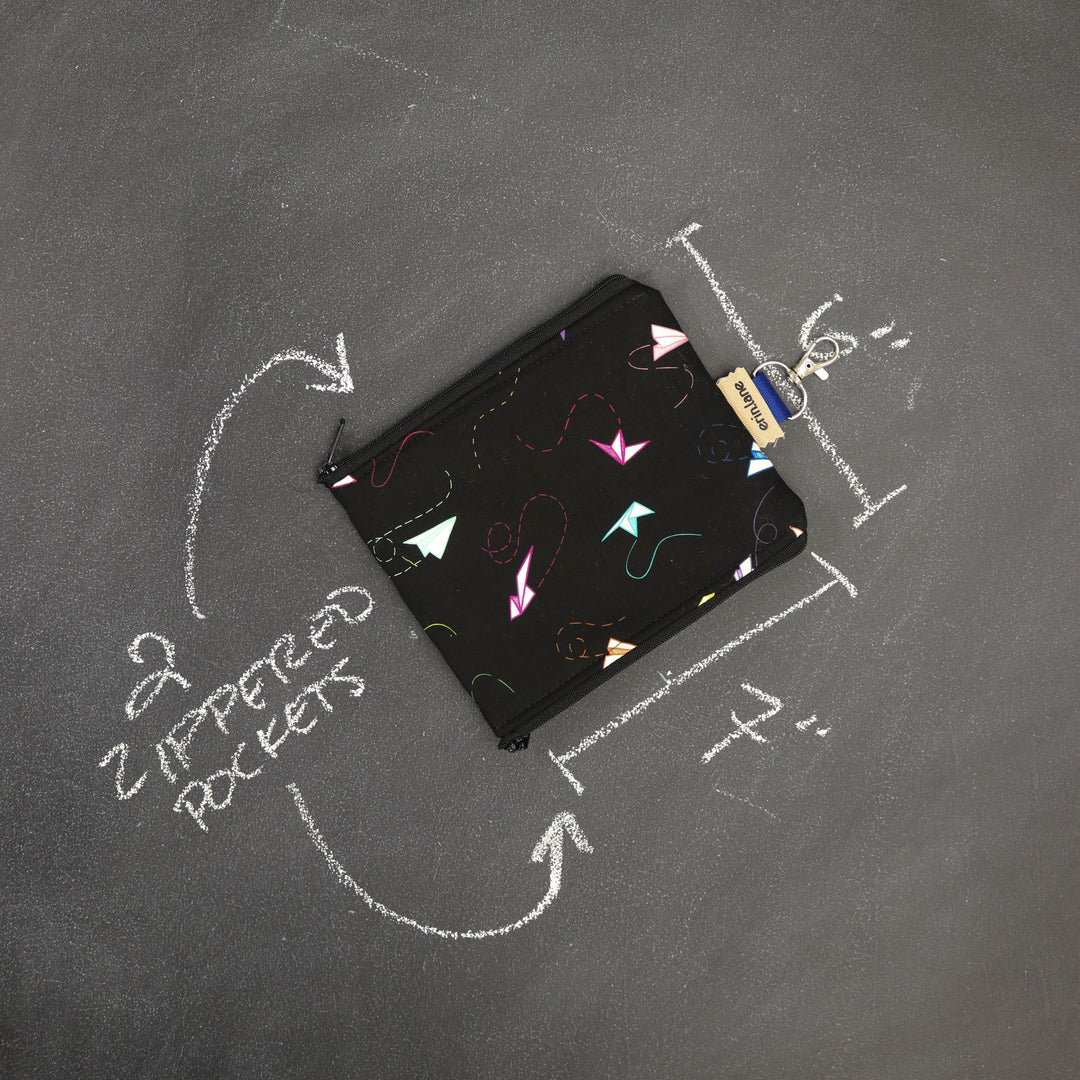 2
ZIPPERED
POCKETS
6"
erin.lane
7"